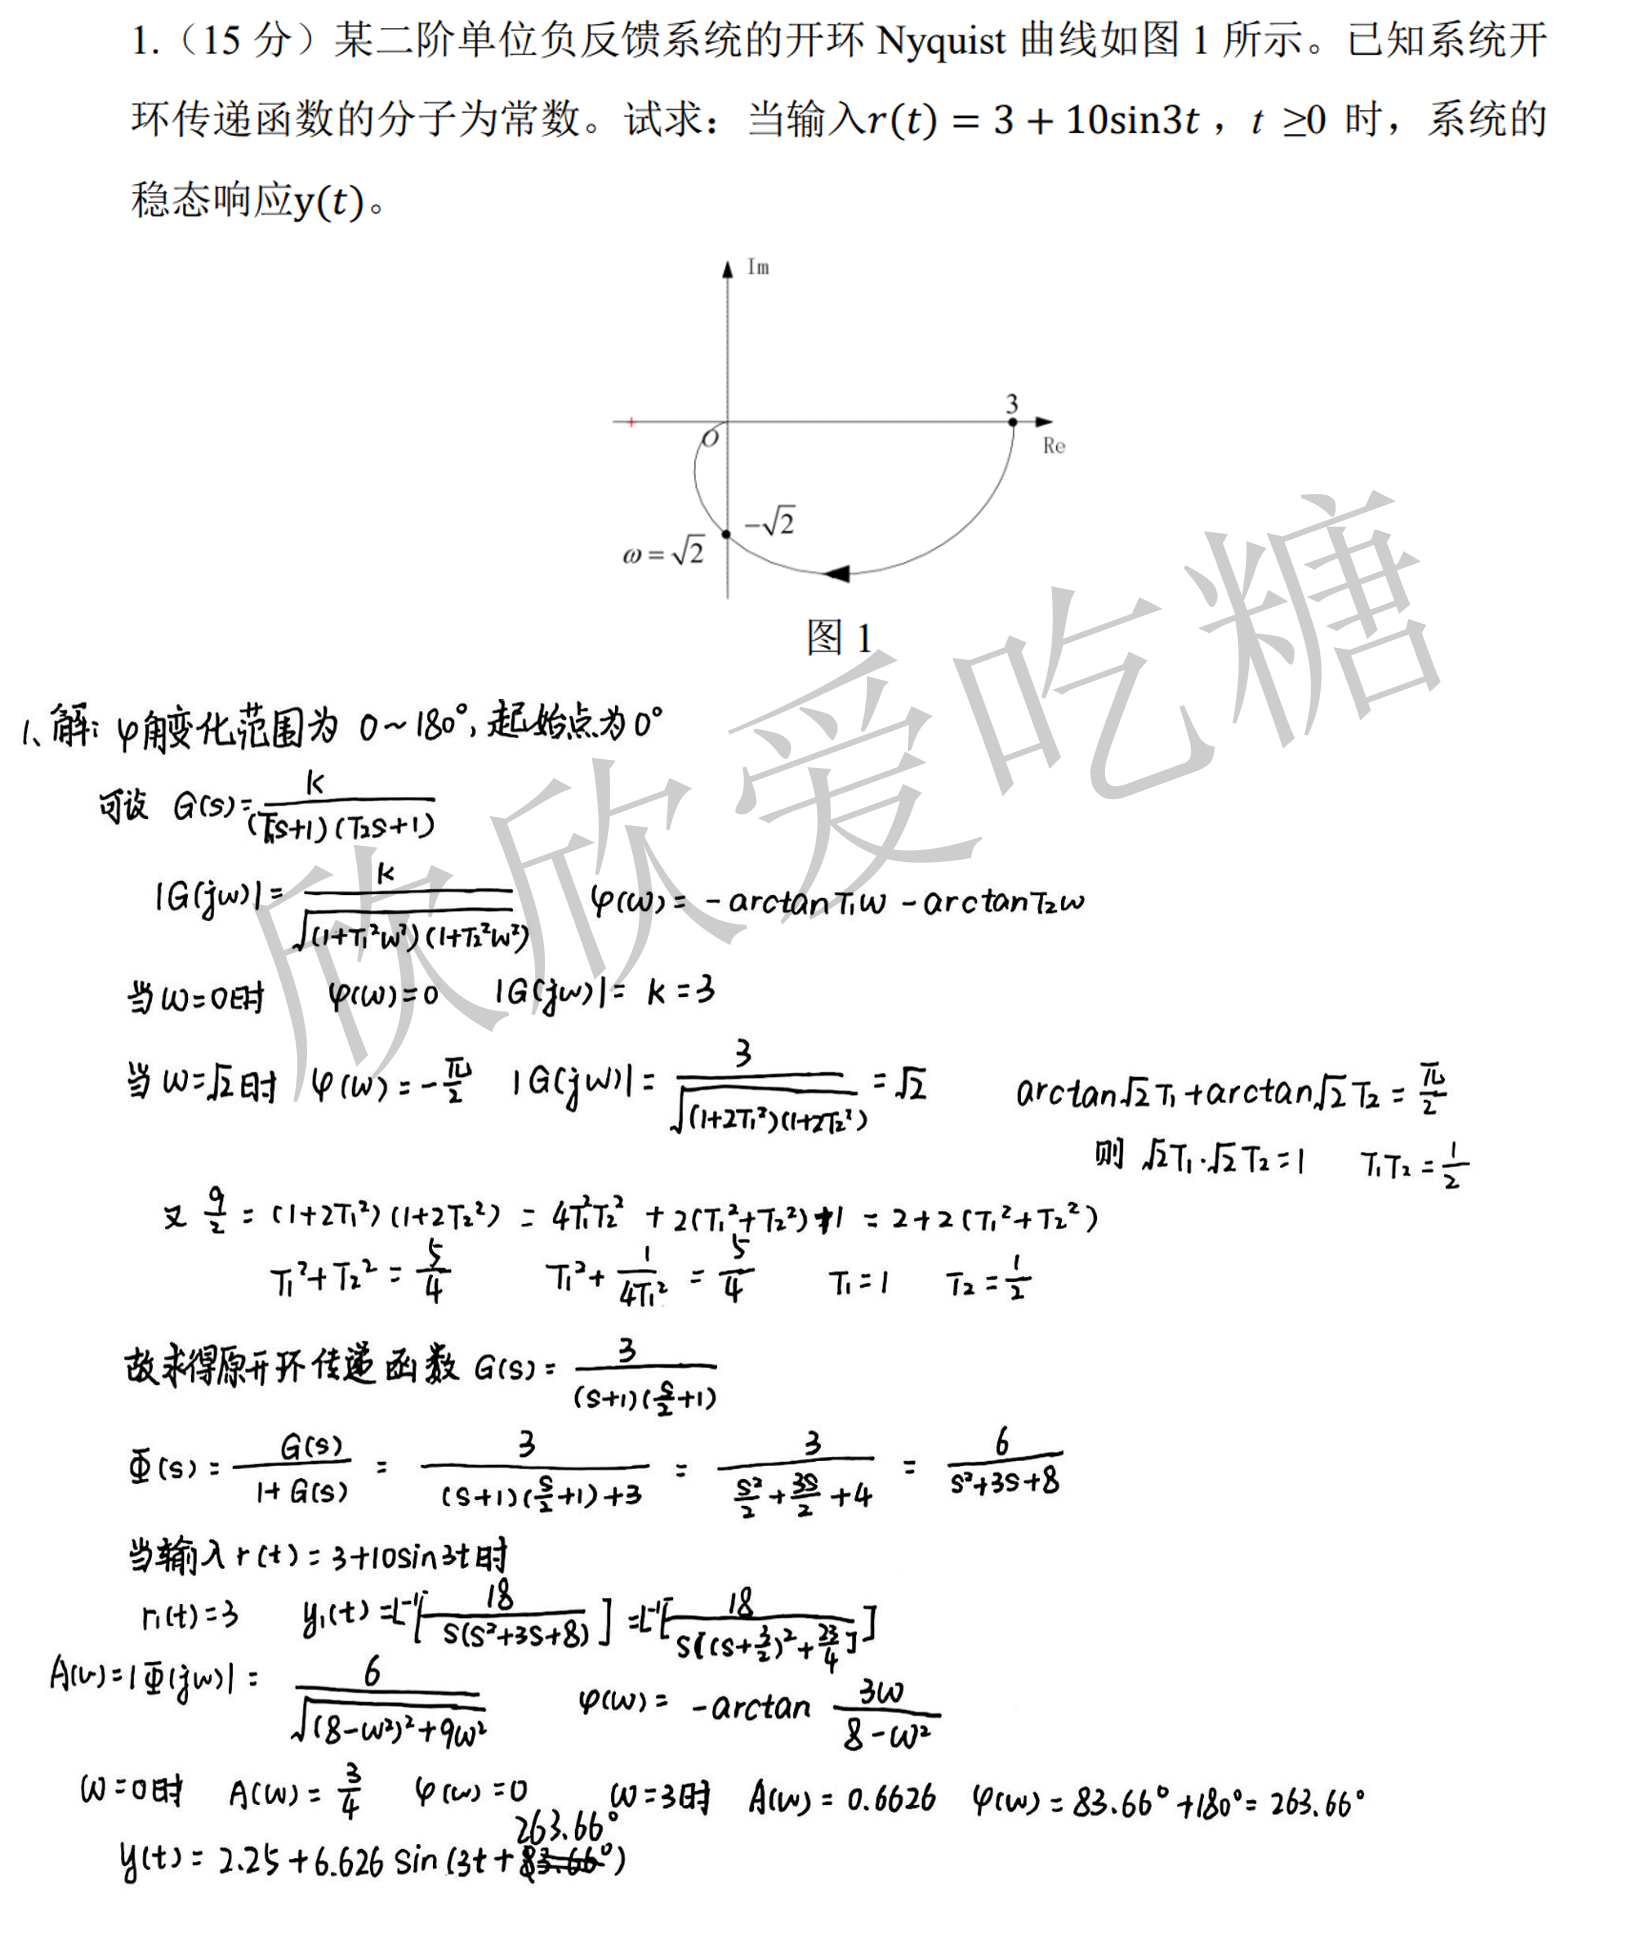 1.（15 分）某二阶单位负反馈系统的开环 Nyquist 曲线如图 1 所示。已知系统开
环传递函数的分子为常数。试求：当输入r(t) = 3 + 10sin3t，t ≥0 时，系统的
稳态响应y(t)。
Im
3
O
Re
-√2
ω=√2
图 1
欣欣爱吃糖
1、解: φ角变化范围为 0~180°, 起始点为0°
可设 G(s)=K/((T₁s+1)(T₂s+1))
|G(jω)|=K/√((1+T₁²ω²)(1+T₂²ω²)) φ(ω)= -arctanT₁ω -arctanT₂ω
当ω=0时 φ(ω)=0 |G(jω)|= K=3
当ω=√2时 φ(ω)=-π/2 |G(jω)|=3/√((1+2T₁²)(1+2T₂²))=√2 arctan√2T₁+arctan√2T₂=π/2
则 √2T₁·√2T₂=1 T₁T₂=1/2
又 9/2=(1+2T₁²)(1+2T₂²)=4T₁²T₂²+2(T₁²+T₂²)+1=2+2(T₁²+T₂²)
T₁²+T₂²=5/4 T₁²+1/(4T₁²)=5/4 T₁=1 T₂=1/2
故求得原开环传递函数 G(s)=3/((s+1)(s/2+1))
Φ(s)=G(s)/(1+G(s))=3/((s+1)(s/2+1)+3)=3/(s²/2+3s/2+4)=6/(s²+3s+8)
当输入r(t)=3+10sin3t时
r₁(t)=3 y₁(t)=L⁻¹[18/(s(s²+3s+8))]=L⁻¹[18/(s[(s+3/2)²+23/4])]
A(ω)=|Φ(jω)|=6/√((8-ω²)²+9ω²) φ(ω)= -arctan 3ω/(8-ω²)
ω=0时 A(ω)=3/4 φ(ω)=0 ω=3时 A(ω)=0.6626 φ(ω)=83.66°+180°=263.66°
263.66°
y(t)=2.25+6.626 sin(3t+83.66°)